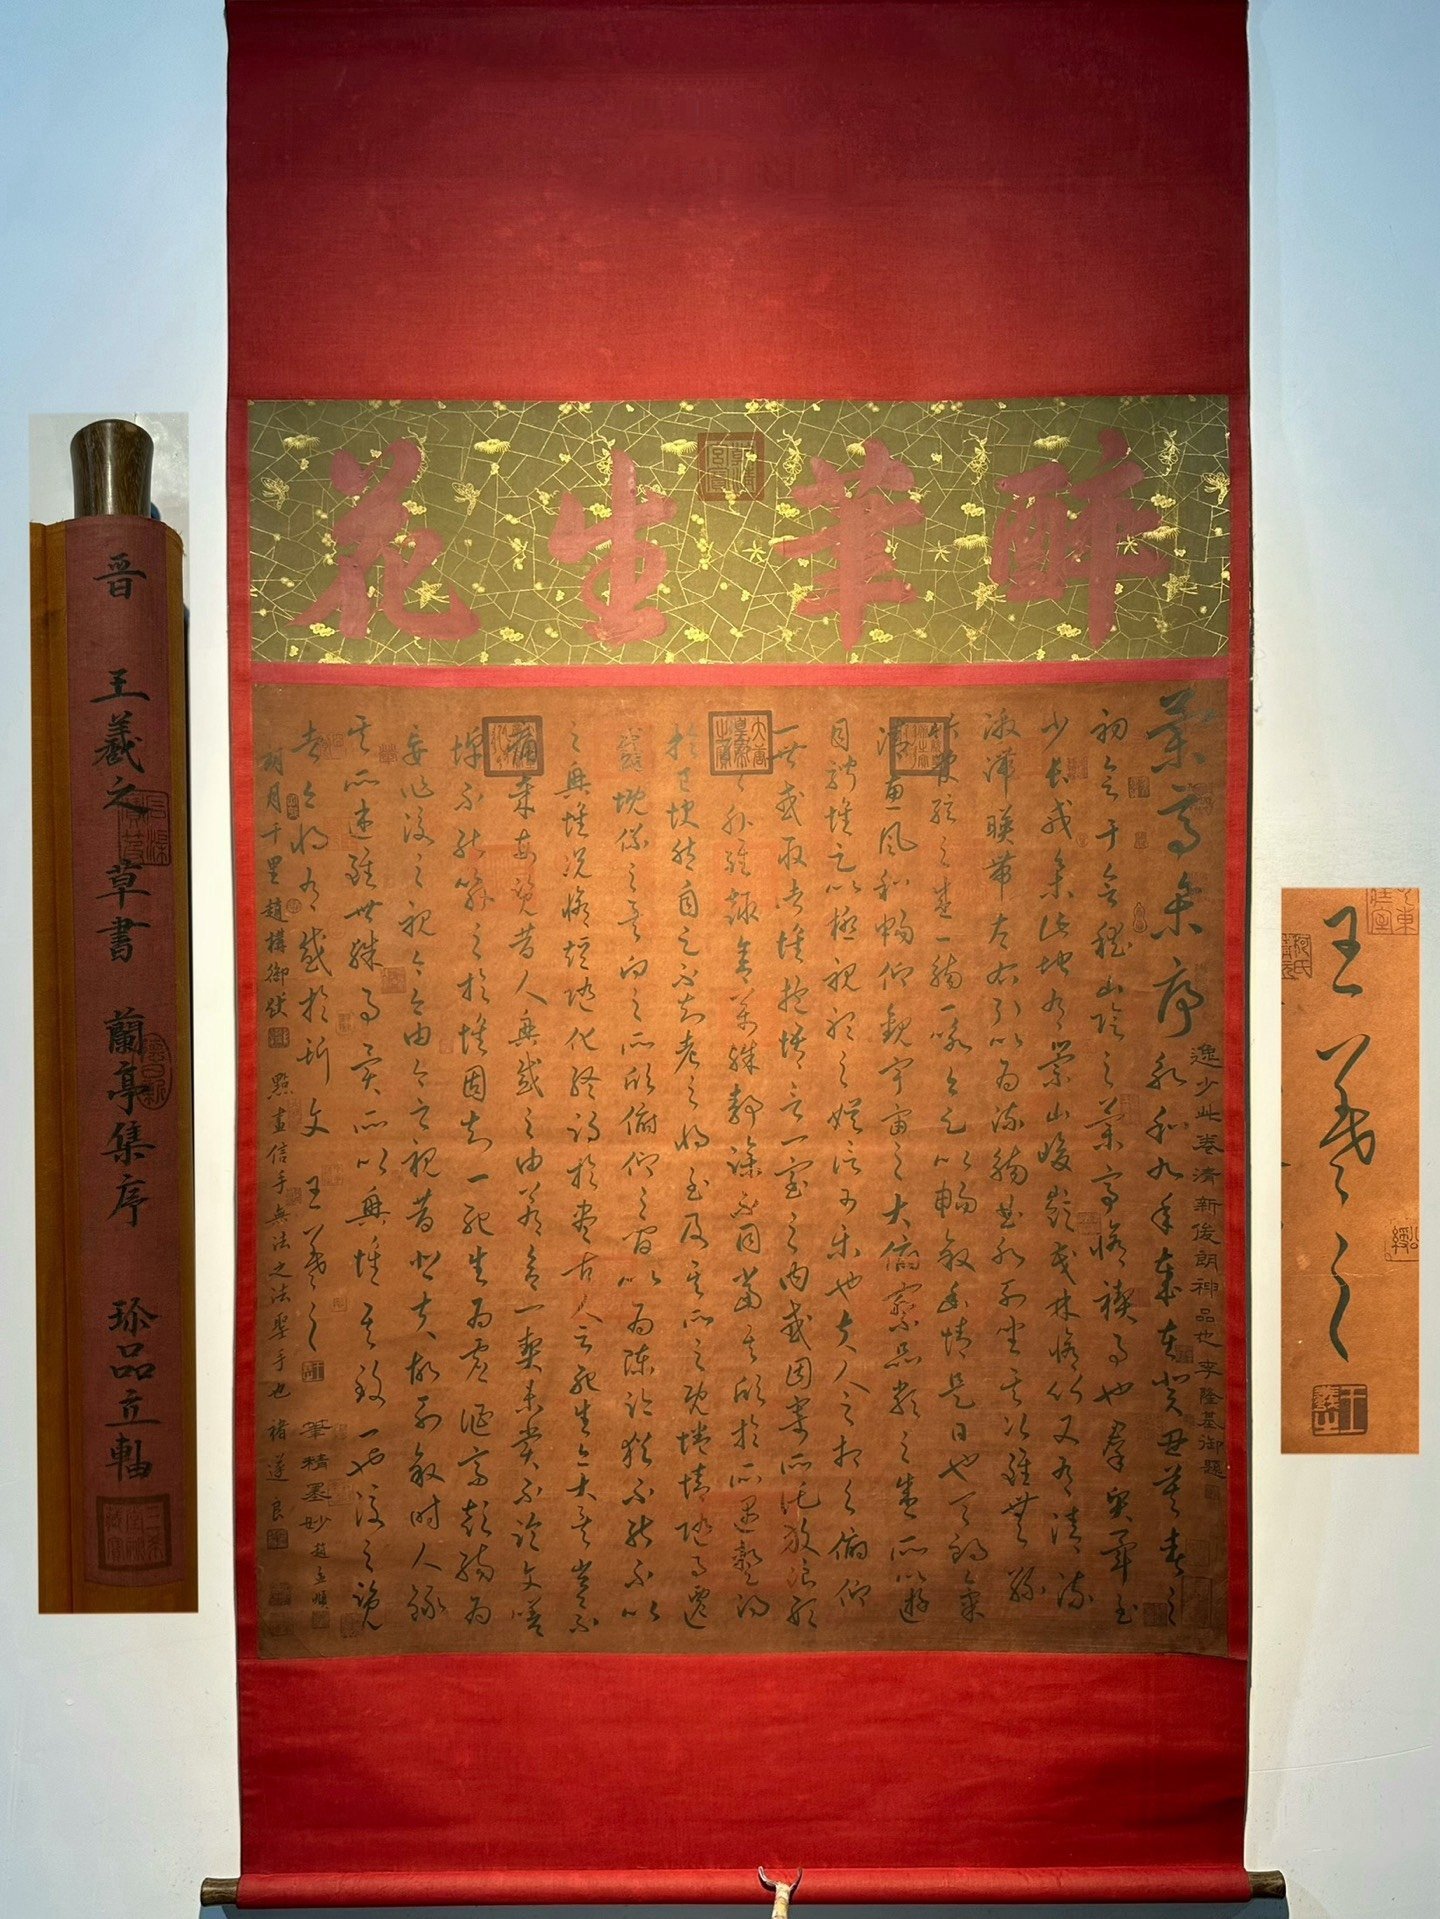 醉筆生花
晉 王羲之 草書 蘭亭集序 珍品立軸
逸少此卷清新俊朗神品也李隆基御題
蘭亭集序 永和九年歲在癸丑暮春之
初會于會稽山陰之蘭亭修禊事也羣賢畢至
少長咸集此地有崇山峻嶺茂林修竹又有清流
激湍暎帶左右引以為流觴曲水列坐其次雖無絲
竹管弦之盛一觴一詠亦足以暢敘幽情是日也天朗氣
清惠風和暢仰觀宇宙之大俯察品類之盛所以遊
目騁懷足以極視聽之娛信可樂也夫人之相與俯仰
一世或取諸懷抱悟言一室之內或因寄所託放浪形
骸之外雖趣舍萬殊靜躁不同當其欣於所遇暫得
於己快然自足不知老之將至及其所之既惓情隨事遷
感慨係之矣向之所欣俯仰之間以為陳迹猶不能不以
之興懷況修短隨化終期於盡古人云死生亦大矣豈不
痛哉每覽昔人興感之由若合一契未嘗不臨文嗟
悼不能喻之於懷固知一死生為虛誕齊彭殤為
妄作後之視今亦由今之視昔悲夫故列敘時人錄
其所述雖世殊事異所以興懷其致一也後之覽
者亦將有感於斯文 王羲之
筆精墨妙 趙孟頫
朗月千里 趙構御
點畫信手無法之法聖手也 褚遂良
大唐皇帝之寶
王羲之
王羲之